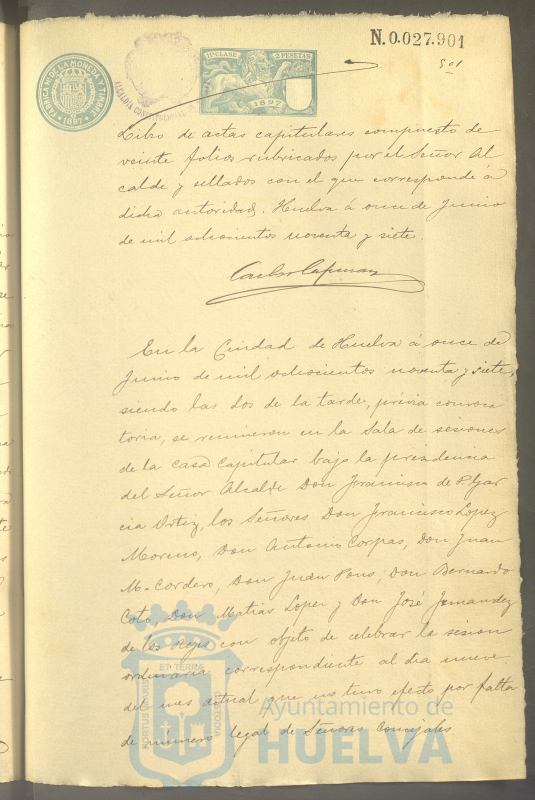 N.0.027.901
501
11ª CLASE 2 PESETAS
1897
FABRICA N. DE LA MONEDA Y TIMBRE
1897
ALCALDIA CONSTITUCIONAL
Libro de actas capitulares compuesto de
veinte folios rubricados por el Señor Al
calde y sellados con el que corresponde a
dicha autoridad. Huelva á once de Junio
de mil ochocientos noventa y siete.
En la Ciudad de Huelva á once de
Junio de mil ochocientos noventa y siete,
siendo las dos de la tarde, prévia convoca
toria, se reunieron en la Sala de sesiones
de la casa Capitular bajo la presidencia
del Señor Alcalde Don Francisco de P. Gar
cia Ortiz, los Señores Don Francisco Lopez
Moreno, Don Antonio Corpas, Don Juan
M. Cordero, Don Juan Pons, Don Bernardo
Coto, Don Matias Lopez y Don José Fernandez
de los Rios con objeto de celebrar la sesion
ordinaria correspondiente al dia nueve
del mes actual que no tuvo efecto por falta
de número legal de Señores Concejales
PORTUS MARIS ET TERRE CUSTODIA
Ayuntamiento de
HUELVA